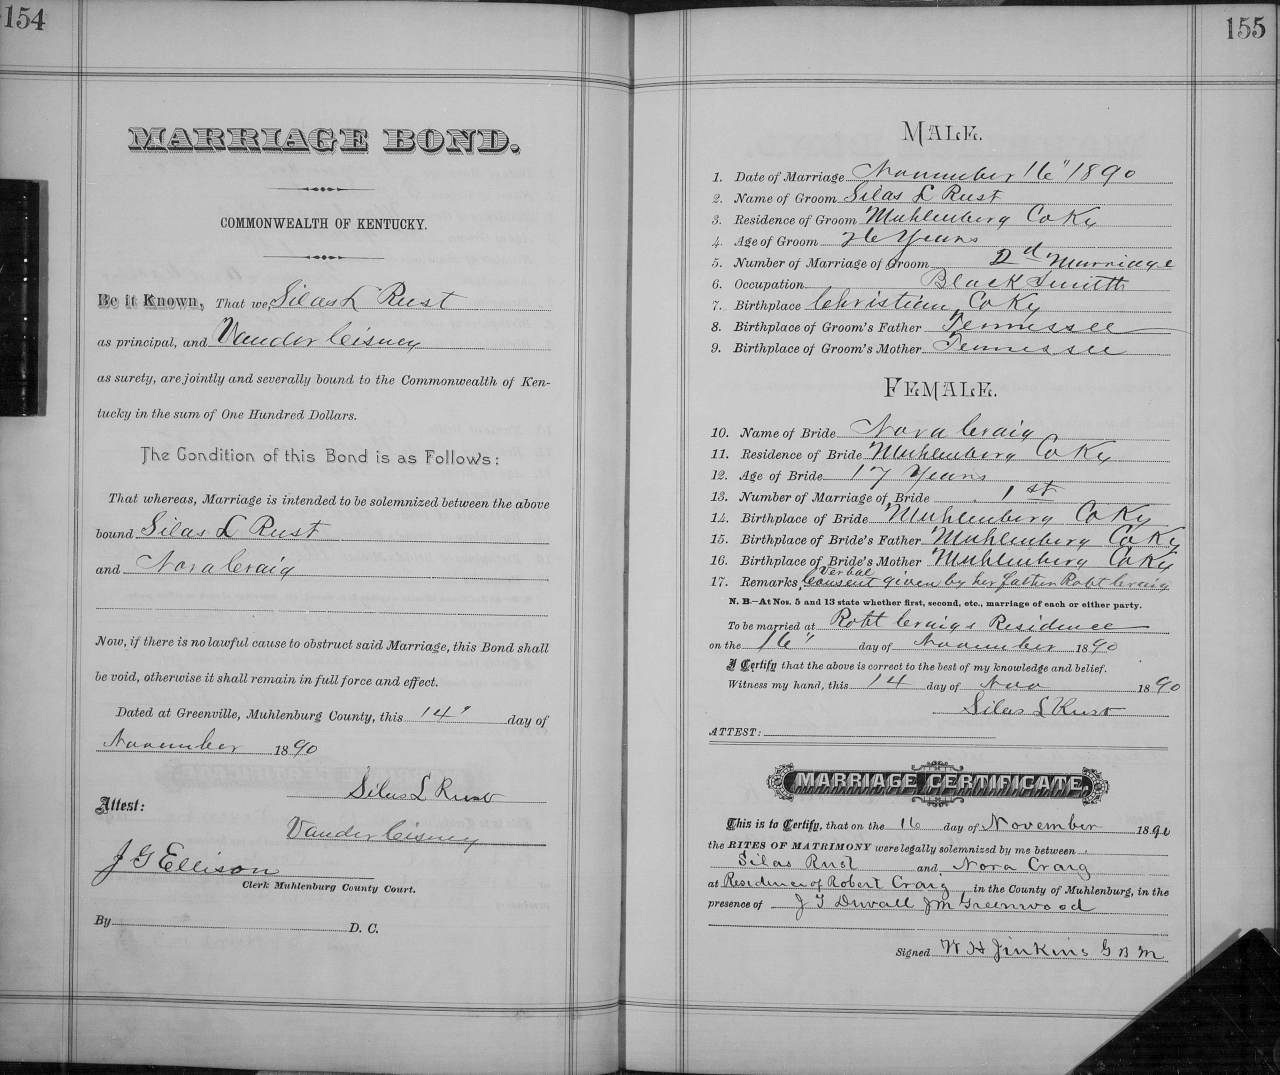 154
MARRIAGE BOND.
COMMONWEALTH OF KENTUCKY.
Be it Known, That we, Silas L Rust
as principal, and Vander Cisney
as surety, are jointly and severally bound to the Commonwealth of Ken-
tucky in the sum of One Hundred Dollars.
The Condition of this Bond is as Follows:
That whereas, Marriage is intended to be solemnized between the above
bound Silas L Rust
and Nora Craig
Now, if there is no lawful cause to obstruct said Marriage, this Bond shall
be void, otherwise it shall remain in full force and effect.
Dated at Greenville, Muhlenburg County, this 14" day of
November 1890
Silas L Rust
Attest:
Vander Cisney
J G Ellison
Clerk Muhlenburg County Court.
By D. C.
155
MALE.
1. Date of Marriage November 16" 1890
2. Name of Groom Silas L Rust
3. Residence of Groom Muhlenberg Co Ky
4. Age of Groom 26 Years
5. Number of Marriage of Groom 2d Marriage
6. Occupation Black Smith
7. Birthplace Christian Co Ky
8. Birthplace of Groom's Father Tennessee
9. Birthplace of Groom's Mother Tennessee
FEMALE.
10. Name of Bride Nora Craig
11. Residence of Bride Muhlenberg Co Ky
12. Age of Bride 17 Years
13. Number of Marriage of Bride 1st
14. Birthplace of Bride Muhlenberg Co Ky
15. Birthplace of Bride's Father Muhlenberg Co Ky
16. Birthplace of Bride's Mother Muhlenberg Co Ky
17. Remarks, Verbal Consent given by her father Robt Craig
N. B.—At Nos. 5 and 13 state whether first, second, etc., marriage of each or either party.
To be married at Robt Craigs Residence
on the 16" day of November 1890
I Certify that the above is correct to the best of my knowledge and belief.
Witness my hand, this 14 day of Nov 1890
Silas L Rust
ATTEST:
MARRIAGE CERTIFICATE.
This is to Certify, that on the 16 day of November 1890
the RITES OF MATRIMONY were legally solemnized by me between
Silas Rust and Nora Craig
at Residence of Robert Craig, in the County of Muhlenburg, in the
presence of J T Duvall J M Greenwood
Signed W H Jinkins G B M